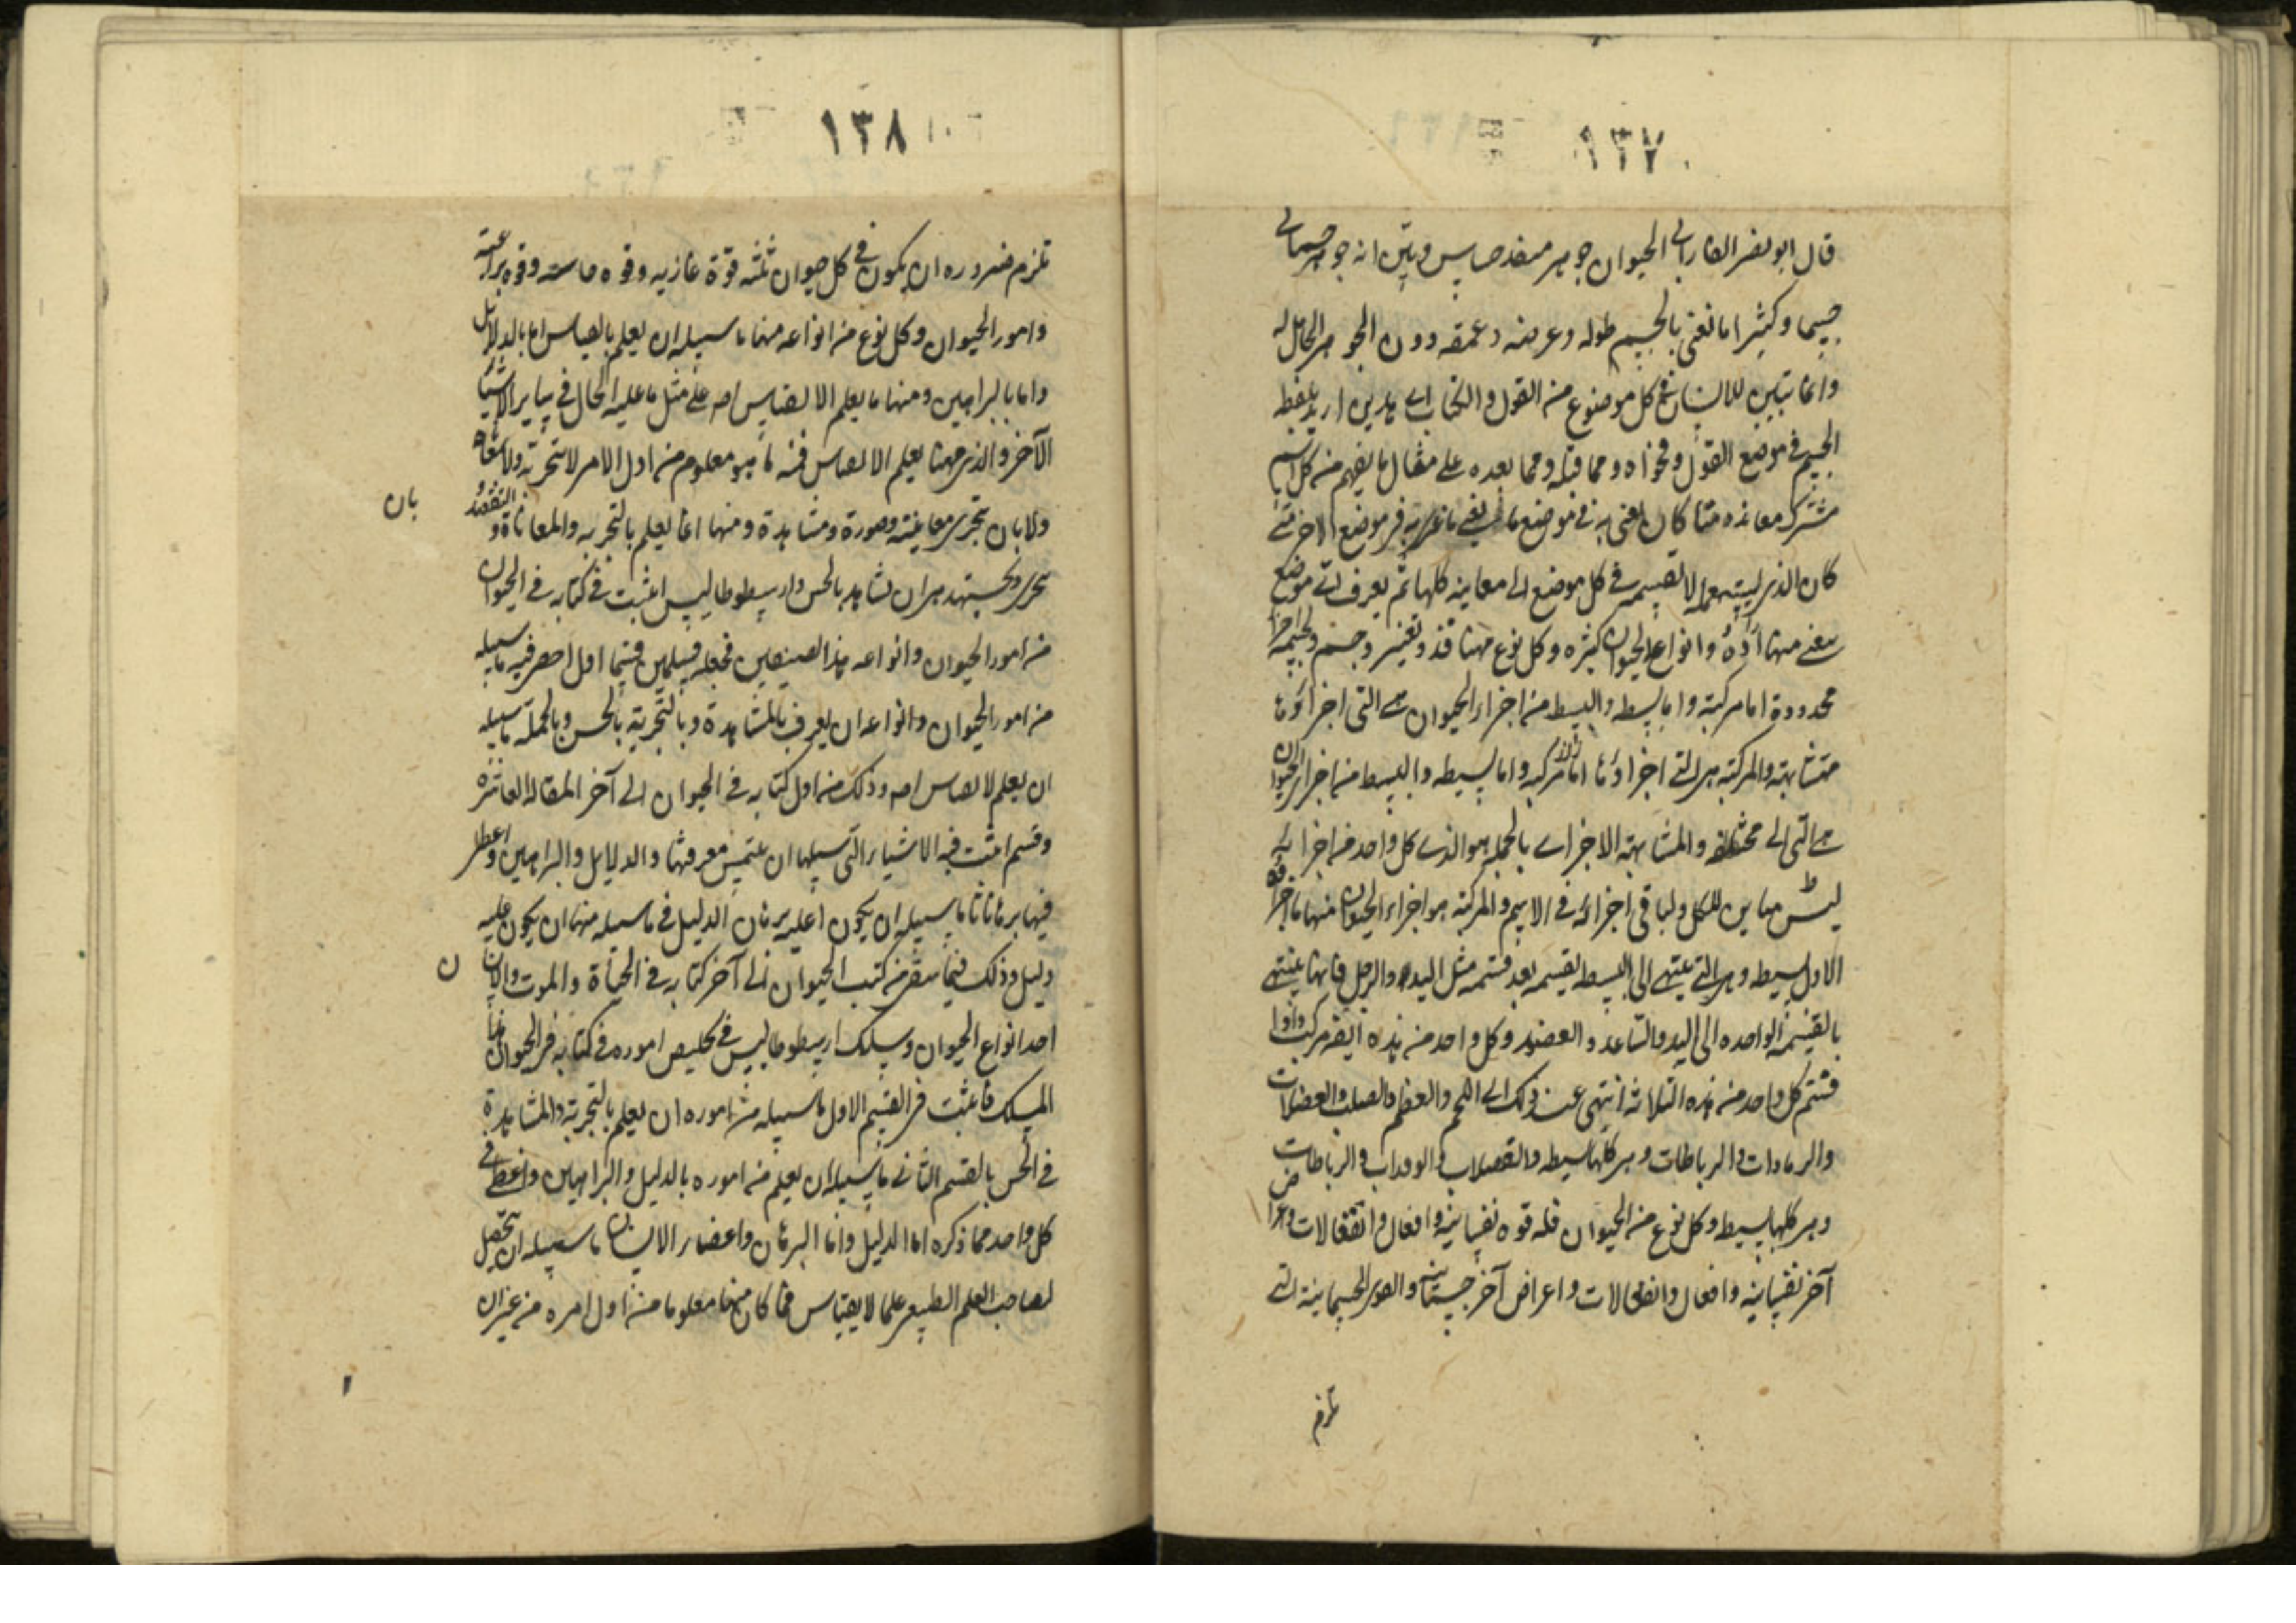 ١٣٧
قال ابو نصر الفارابى الحيوان جوهر متغذ حساس وبين انه جوهر جسمانى
جسما وكثيرا ما نعنى بالجسم طوله وعرضه وعمقه دون الجوهر الحامل له
وانما يتبين للانسان فى كل موضوع من القول والكتاب اى هذين اريد بلفظ
الجسم فى موضع القول وفحواه ومما قبله ومما بعده على مثال ما يفهم من كل اسم
مشترك معانيه متى كان يعنى به فى موضع ما فى موضع الاخر متى
كان الذى يستعمله لا يقسمه فى كل موضع الى معانيه كلها ثم يعرف اى موضع
يعنى منها وانواع الحيوان كثيرة وكل نوع منها
محدودة اما مركبة واما بسيطه والبسيط من اجزاء الحيوان هى التى اجزاؤها
متشابهة والمركبة هى التى اجزاؤها اما مركبه واما بسيطه والبسيط من اجزاء الحيوان
هى التى الى والمتشابهة الاجزاء بالجمله هو الذى كل واحد من اجزائه
ليس مباين للكل ولباقى اجزائه فى الاسم والمركبة هو اجزاء الحيوان منها ما اجزاؤه
الاول بسيطه وهى التى ينتهى الى البسيط بقسمه بعد قسمه مثل اليد والرجل فانها ينتهى
بالقسمة الواحده الى اليد والساعد والعضد وكل واحد من هذه ايضا مركب واذا
قسم كل واحد من هذه الثلاثه انتهى عند ذلك الى اللحم والعظم والعصب والعضلات
والرباطات وهى كلها بسيطه والرباطات
وهى كلها بسيطه وكل نوع من الحيوان فله قوه نفسانيه وافعال وانفعالات واعراض
آخر نفسانيه وافعال وانفعالات واعراض آخر جسمانيه والقوى الجسمانية التى
تلزم
١٣٨
تلزم ضروره ان يكون فى كل حيوان ثلثه قوة غاذيه وقوه حاسه وقوه
وامور الحيوان وكل نوع من انواعه منها ما سبيله ان يعلم بالقياس اما بالدلائل
واما بالبراهين ومنها ما يعلم لا بقياس اصلا على مثل ما عليه الحال فى ساير الاشيا
الآخر والذى منها يعلم لا بقياس فمنه ما هو معلوم من اول الامر لا بتجربة ولا
ولا بان تجرى معاينة وصورة ومشاهدة ومنها انما يعلم بالتجربه والمعاناة والتفقد
بان
يحرى ويجتهد من ان نشاهد بالحس وارسطوطاليس اثبت فى كتابه فى الحيوان
من امور الحيوان وانواعه هذا الصنفين فجعله قسمين قسما اول احصر فيه ما سبيله
من امور الحيوان وانواعه ان يعرف بالمشاهدة وبالتجربة بالحس وبالجملة ما سبيله
ان يعلم لا بقياس اصلا وذلك من اول كتابه فى الحيوان الى آخر المقاله العاشره
وقسم اثبت فيه الاشياء التى سبيلها ان يلتمس معرفتها والدلايل والبراهين واعطى
فيها برهانا ما سبيله ان يكون عليه برهان الدليل فى ما سبيله منها ان يكون عليه
دليل وذلك فيما بقى من كتب الحيوان الى آخر كتابه فى الحياة والموت والانسان
ن
احد انواع الحيوان وسلك ارسطوطاليس فى تلخيص اموره فى كتابه فى الحيوان هذا
المسلك فاثبت فى القسم الاول ما سبيله من اموره ان يعلم بالتجربة والمشاهدة
فى الحس بالقسم الثانى ما سبيله ان يعلم من اموره بالدليل والبراهين واعطى فى
كل واحد مما ذكره اما الدليل واما البرهان واعضاء الانسان ما سبيله ان يحصل
لصاحب العلم الطبيعى علما لا بقياس فما كان منها معلوما من اول امره من غير ان